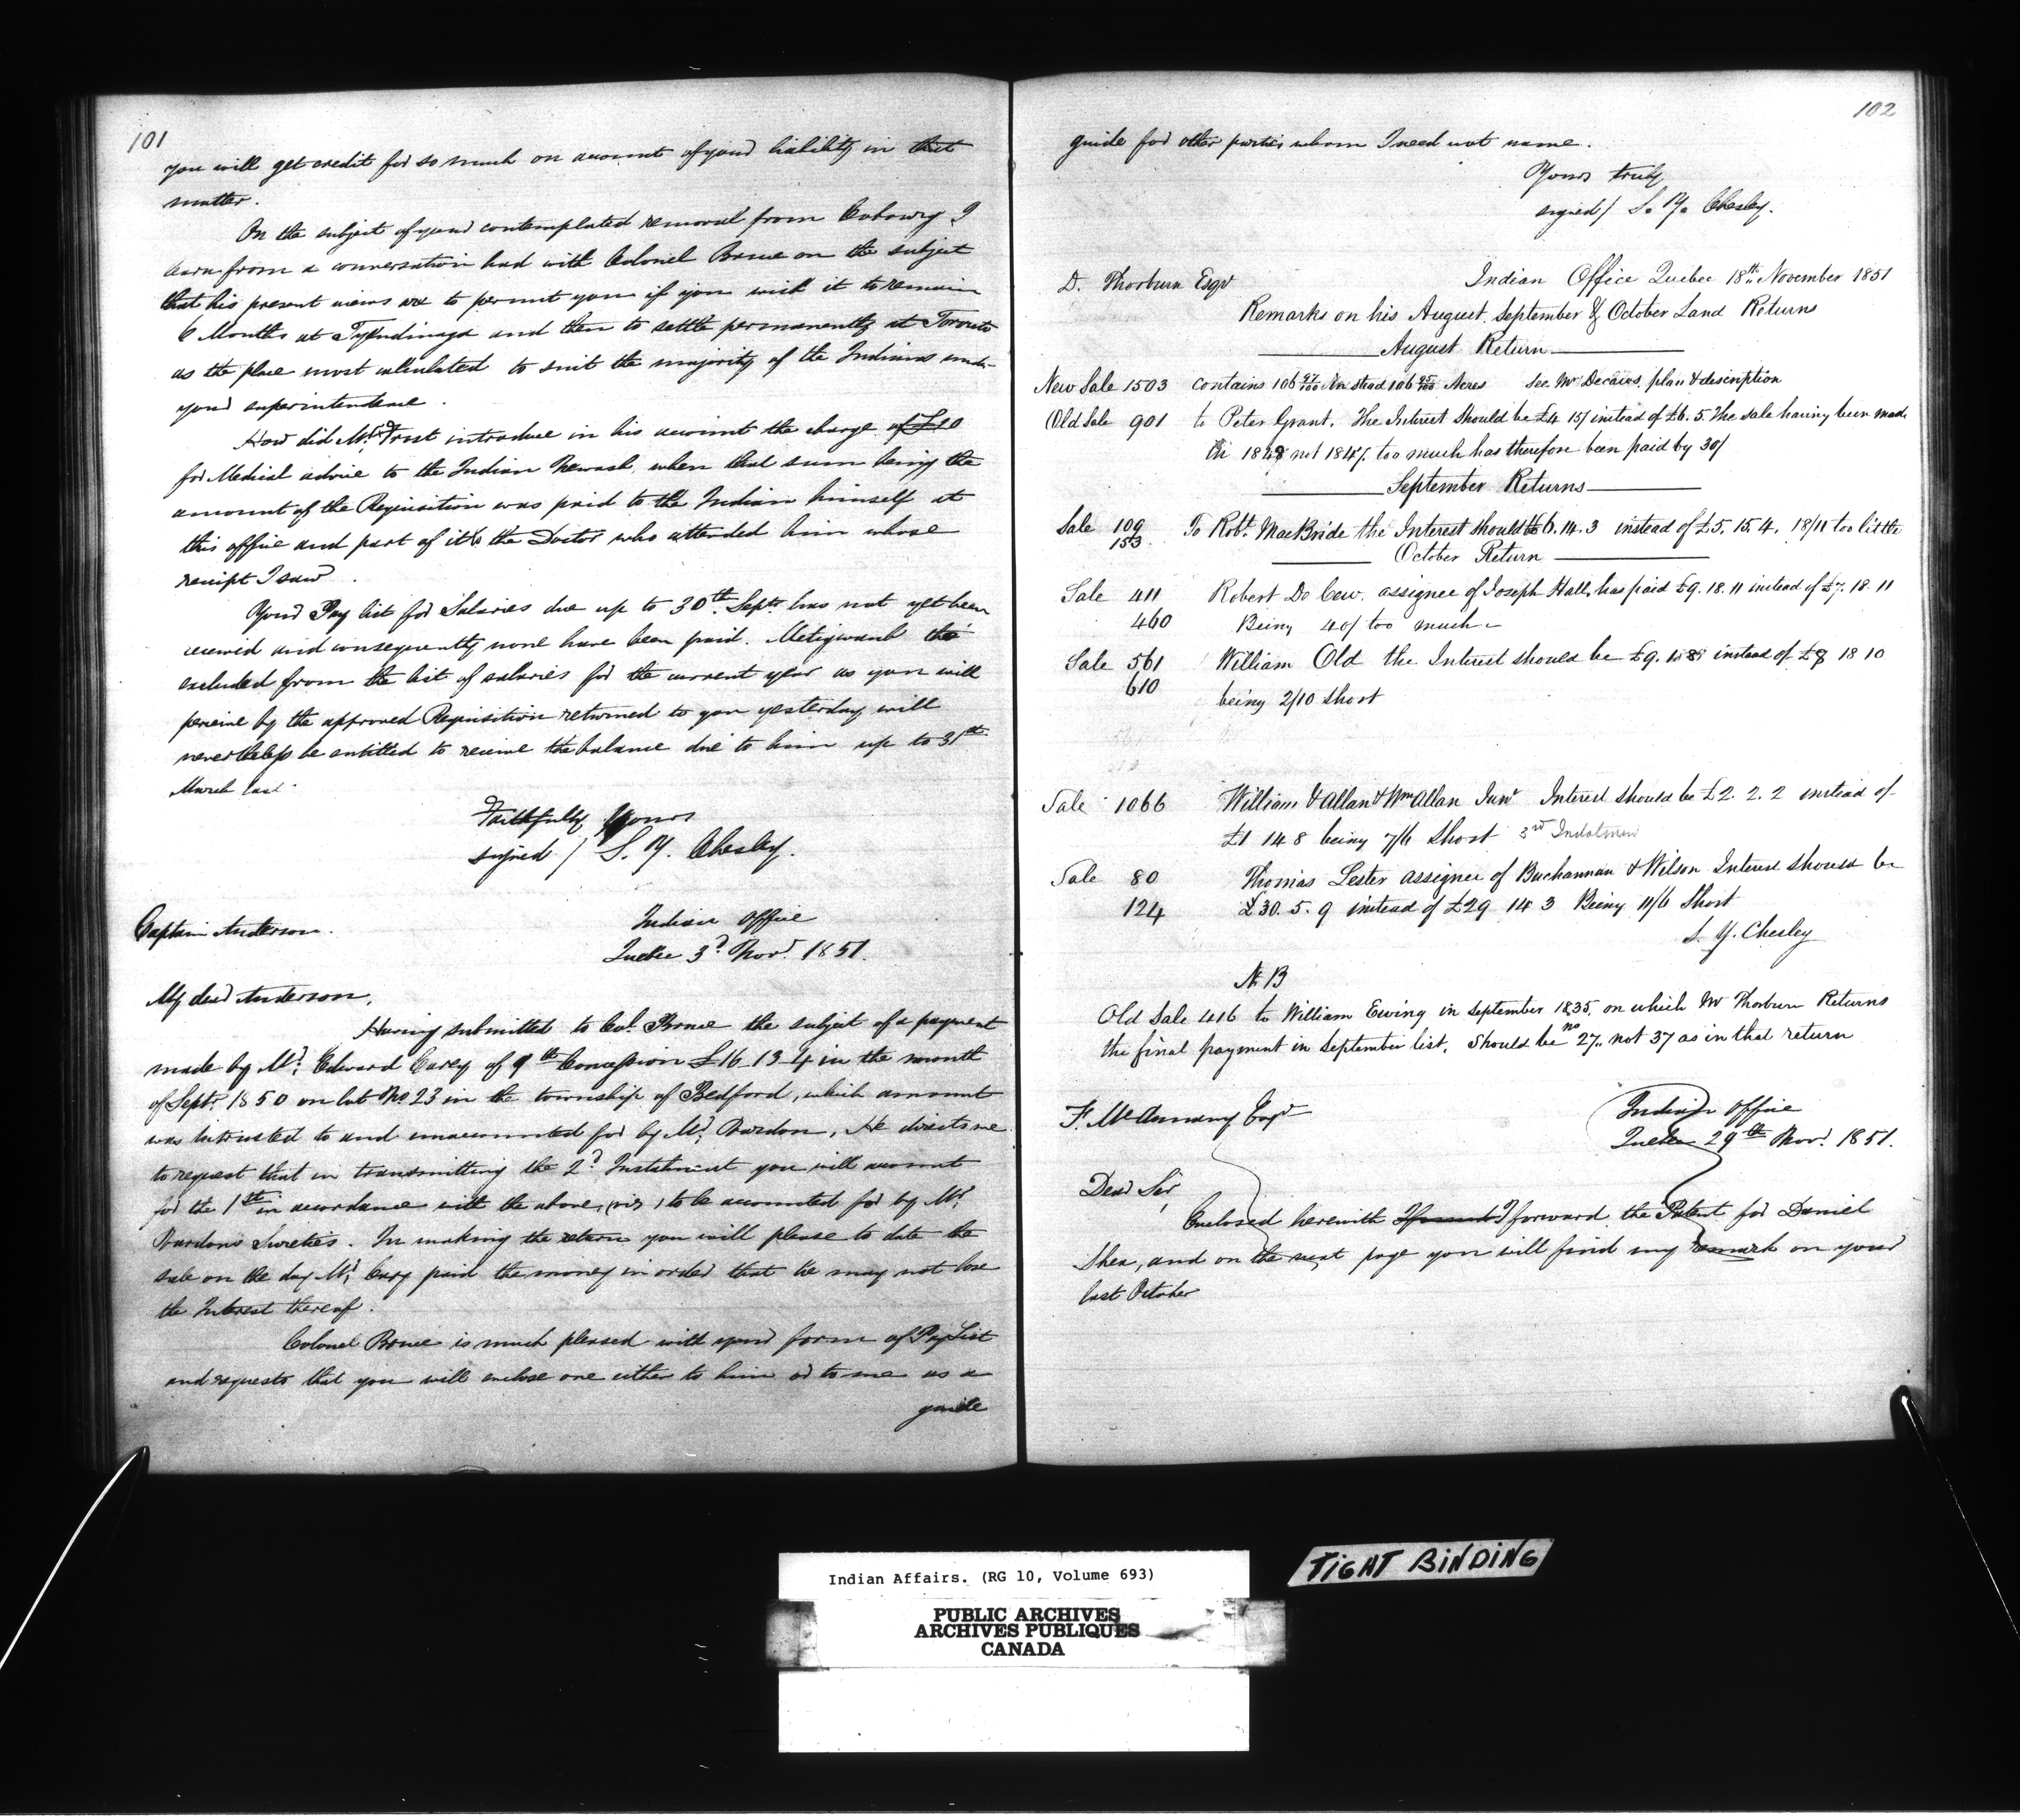 101
you will get credit for so much on account of your liability in that
matter.
On the subject of your contemplated removal from Cobourg I
learn from a conversation had with Colonel Bruce on the subject
that his present views are to permit you if you wish it to remain
6 Months at Tyendinaga and then to settle permanently at Toronto
as the place most calculated to suit the majority of the Indians under
your superintendence.
How did Mr. Frost introduce in his account the charge of £10
for Medical advice to the Indian Newash when that sum being the
amount of the Requisition was paid to the Indian himself at
this office and part of it to the Doctor who attended him whose
receipt I saw.
Your Pay list for Salaries due up to 30th. Septr. has not yet been
received and consequently none have been paid. Metigwaub tho'
excluded from the list of salaries for the current year as you will
perceive by the approved Requisition returned to you yesterday will
nevertheless be entitled to receive the balance due to him up to 31st
March last.
Faithfully Yours
signed / S. Y. Chesley.
Captain Anderson.
Indian Office
Quebec 3d. Novr. 1851.
My dear Anderson,
Having submitted to Col. Bruce the subject of a payment
made by Mr. Edward Carey of 9th Concession £16-13-4 in the month
of Septr. 1850 on lot No. 23 in the township of Bedford, which amount
was intrusted to and unaccounted for by Mr. Burdon, He directs me
to request that in transmitting the 2d. Instalment you will account
for the 1st in accordance with the above, (viz) to be accounted for by Mr.
Burdons Sureties. In making the return you will please to date the
sale on the day Mr. Cary paid the money in order that he may not lose
the Interest thereof.
Colonel Bruce is much pleased with your form of Pay List
and requests that you will enclose one either to him or to me as a
guide
102
guide for other parties whom I need not name.
Yours truly
signed / S. Y. Chesley.
D. Thorburn Esqr
Indian Office Quebec 18th November 1851
Remarks on his August, September & October Land Returns
August Return
New Sale 1503 contains 106 97/100 Instead 106 95/100 Acres See Mr Decews, plan & description
Old Sale 901 to Peter Grant. The Interest Should be £4 15/ instead of £6. 5. The sale having been made
in 1848 not 1847. too much has therefore been paid by 30/
September Returns
Sale 109 To Robt. MacBride the Interest should be 6. 14. 3 instead of £5. 15. 4. 18/11 too little
153
October Return
Sale 411 Robert De Cew. assignee of Joseph Hall, has paid £9. 18. 11 instead of £7. 18. 11
460 Being 40/ too much
Sale 561 William Old the Interest should be £9. 1. 8 instead of £8 18 10
610 being 2/10 short
Sale 1066 William & Allan & Wm Allan Junr Interest should be £2. 2. 2 instead of
£1 14 8 being 7/6 short 3rd Instalment
Sale 80 Thomas Lester assignee of Buchannan & Wilson Interest should be
124 £30. 5. 9 instead of £29 14 3 Being 11/6 Short
S. Y. Chesley
N B
Old Sale 416 to William Ewing in September 1835, on which Mr Thorburn Returns
the final payment in September list, should be no 27,, not 37 as in that return
F. McAnnany Esqr
Indian Office
Quebec 29th Novr. 1851.
Dear Sir,
Enclosed herewith I forward, the Patent for Daniel
Shea, and on the next page you will find my remark on your
last October
Indian Affairs. (RG 10, Volume 693)
PUBLIC ARCHIVES
ARCHIVES PUBLIQUES
CANADA
TIGHT BINDING